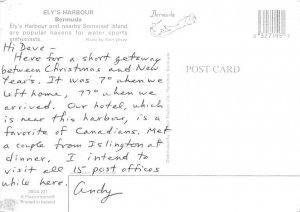 ELY'S HARBOUR
Bermuda
Ely's Harbour and nearby Somerset Island
are popular havens for water sports
enthusiasts.
Bermuda
POST CARD
Hi Dave -
Here for a short getaway
between Christmas and New
Year's. It was 7° when we
left home, 77° when we
arrived. Our hotel, which
is near this harbour, is a
favorite of Canadians. Met
a couple from Islington at
dinner. I intend to
visit all 15 post offices
while here.
Andy